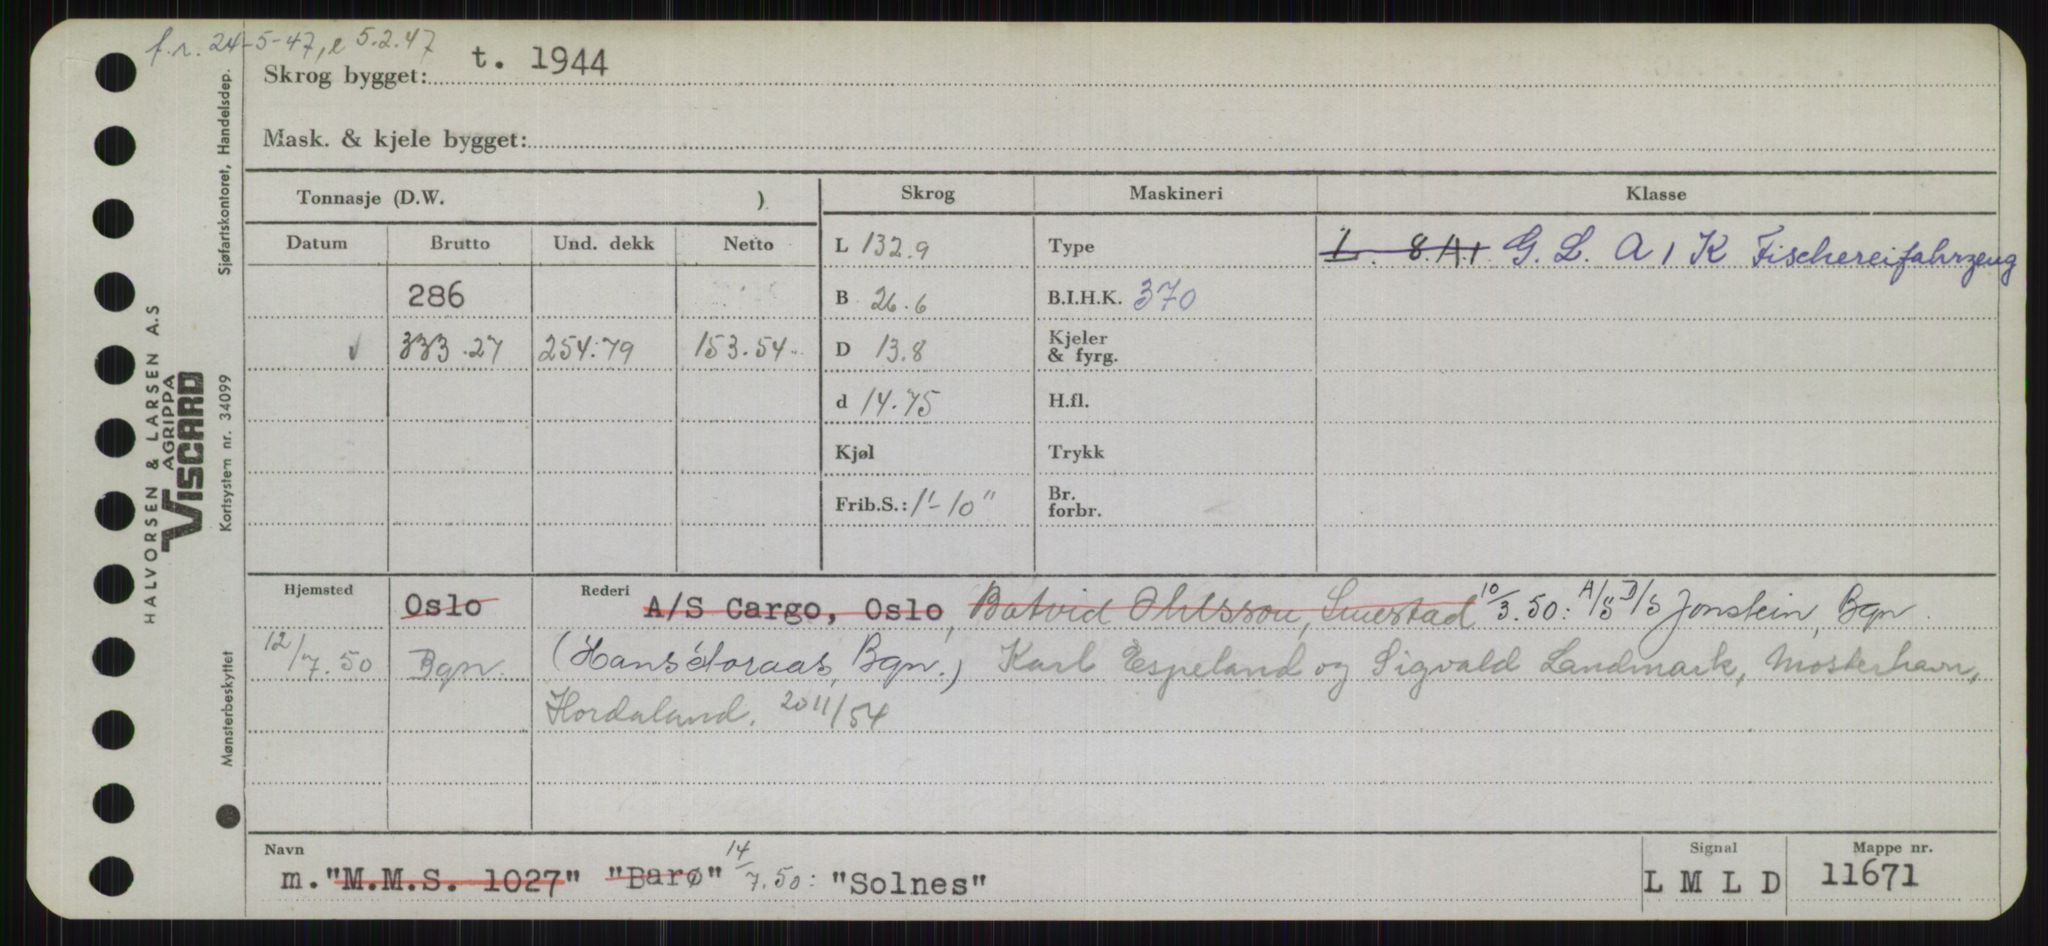 f.r. 24-5-47, e 5.2.47
Skrog bygget: t. 1944
Mask. & kjele bygget:
Tonnasje (D.W. ) Skrog Maskineri Klasse
Datum Brutto Und. dekk Netto L 132.9 Type L. 8.A.1. G. L. A 1 K Fischereifahrzeug
286 B 26.6 B.I.H.K. 370
√ 333.27 254.79 153.54 D 13.8 Kjeler & fyrg.
d 14.75 H.fl.
Kjøl Trykk
Frib.S.: 1'-10" Br. forbr.
Hjemsted Oslo Rederi A/S Cargo, Oslo, Botvid Ohlsson, Smestad 10/3.50: A/S D/S Jonstein, Bgn
12/7.50 Bgn. (Hans Storaas, Bgn.) Karl Espeland og Sigvald Landmark, Mosterhavn,
Hordaland. 20 11/54
Navn Signal Mappe nr.
m. "M.M.S. 1027" "Barø" 14/7.50: "Solnes" L M L D 11671
Sjøfartskontoret, Handelsdep.
Kortsystem nr. 34099
Mønsterbeskyttet
HALVORSEN & LARSEN A.S
AGRIPPA
VISCARD